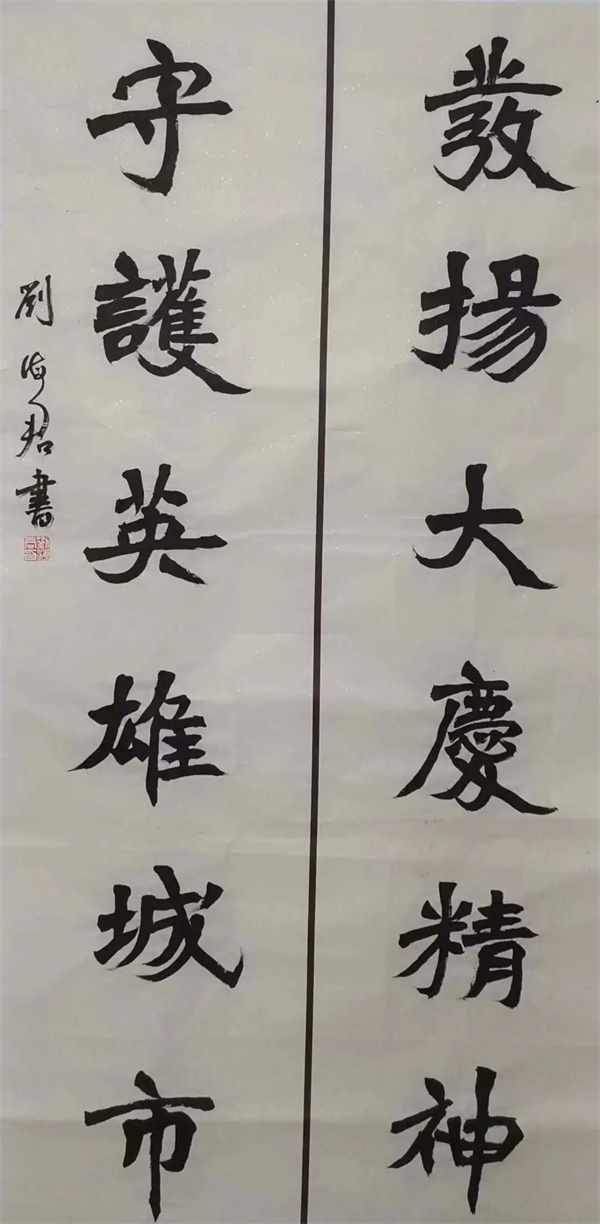 發揚大慶精神
守護英雄城市
劉海君書